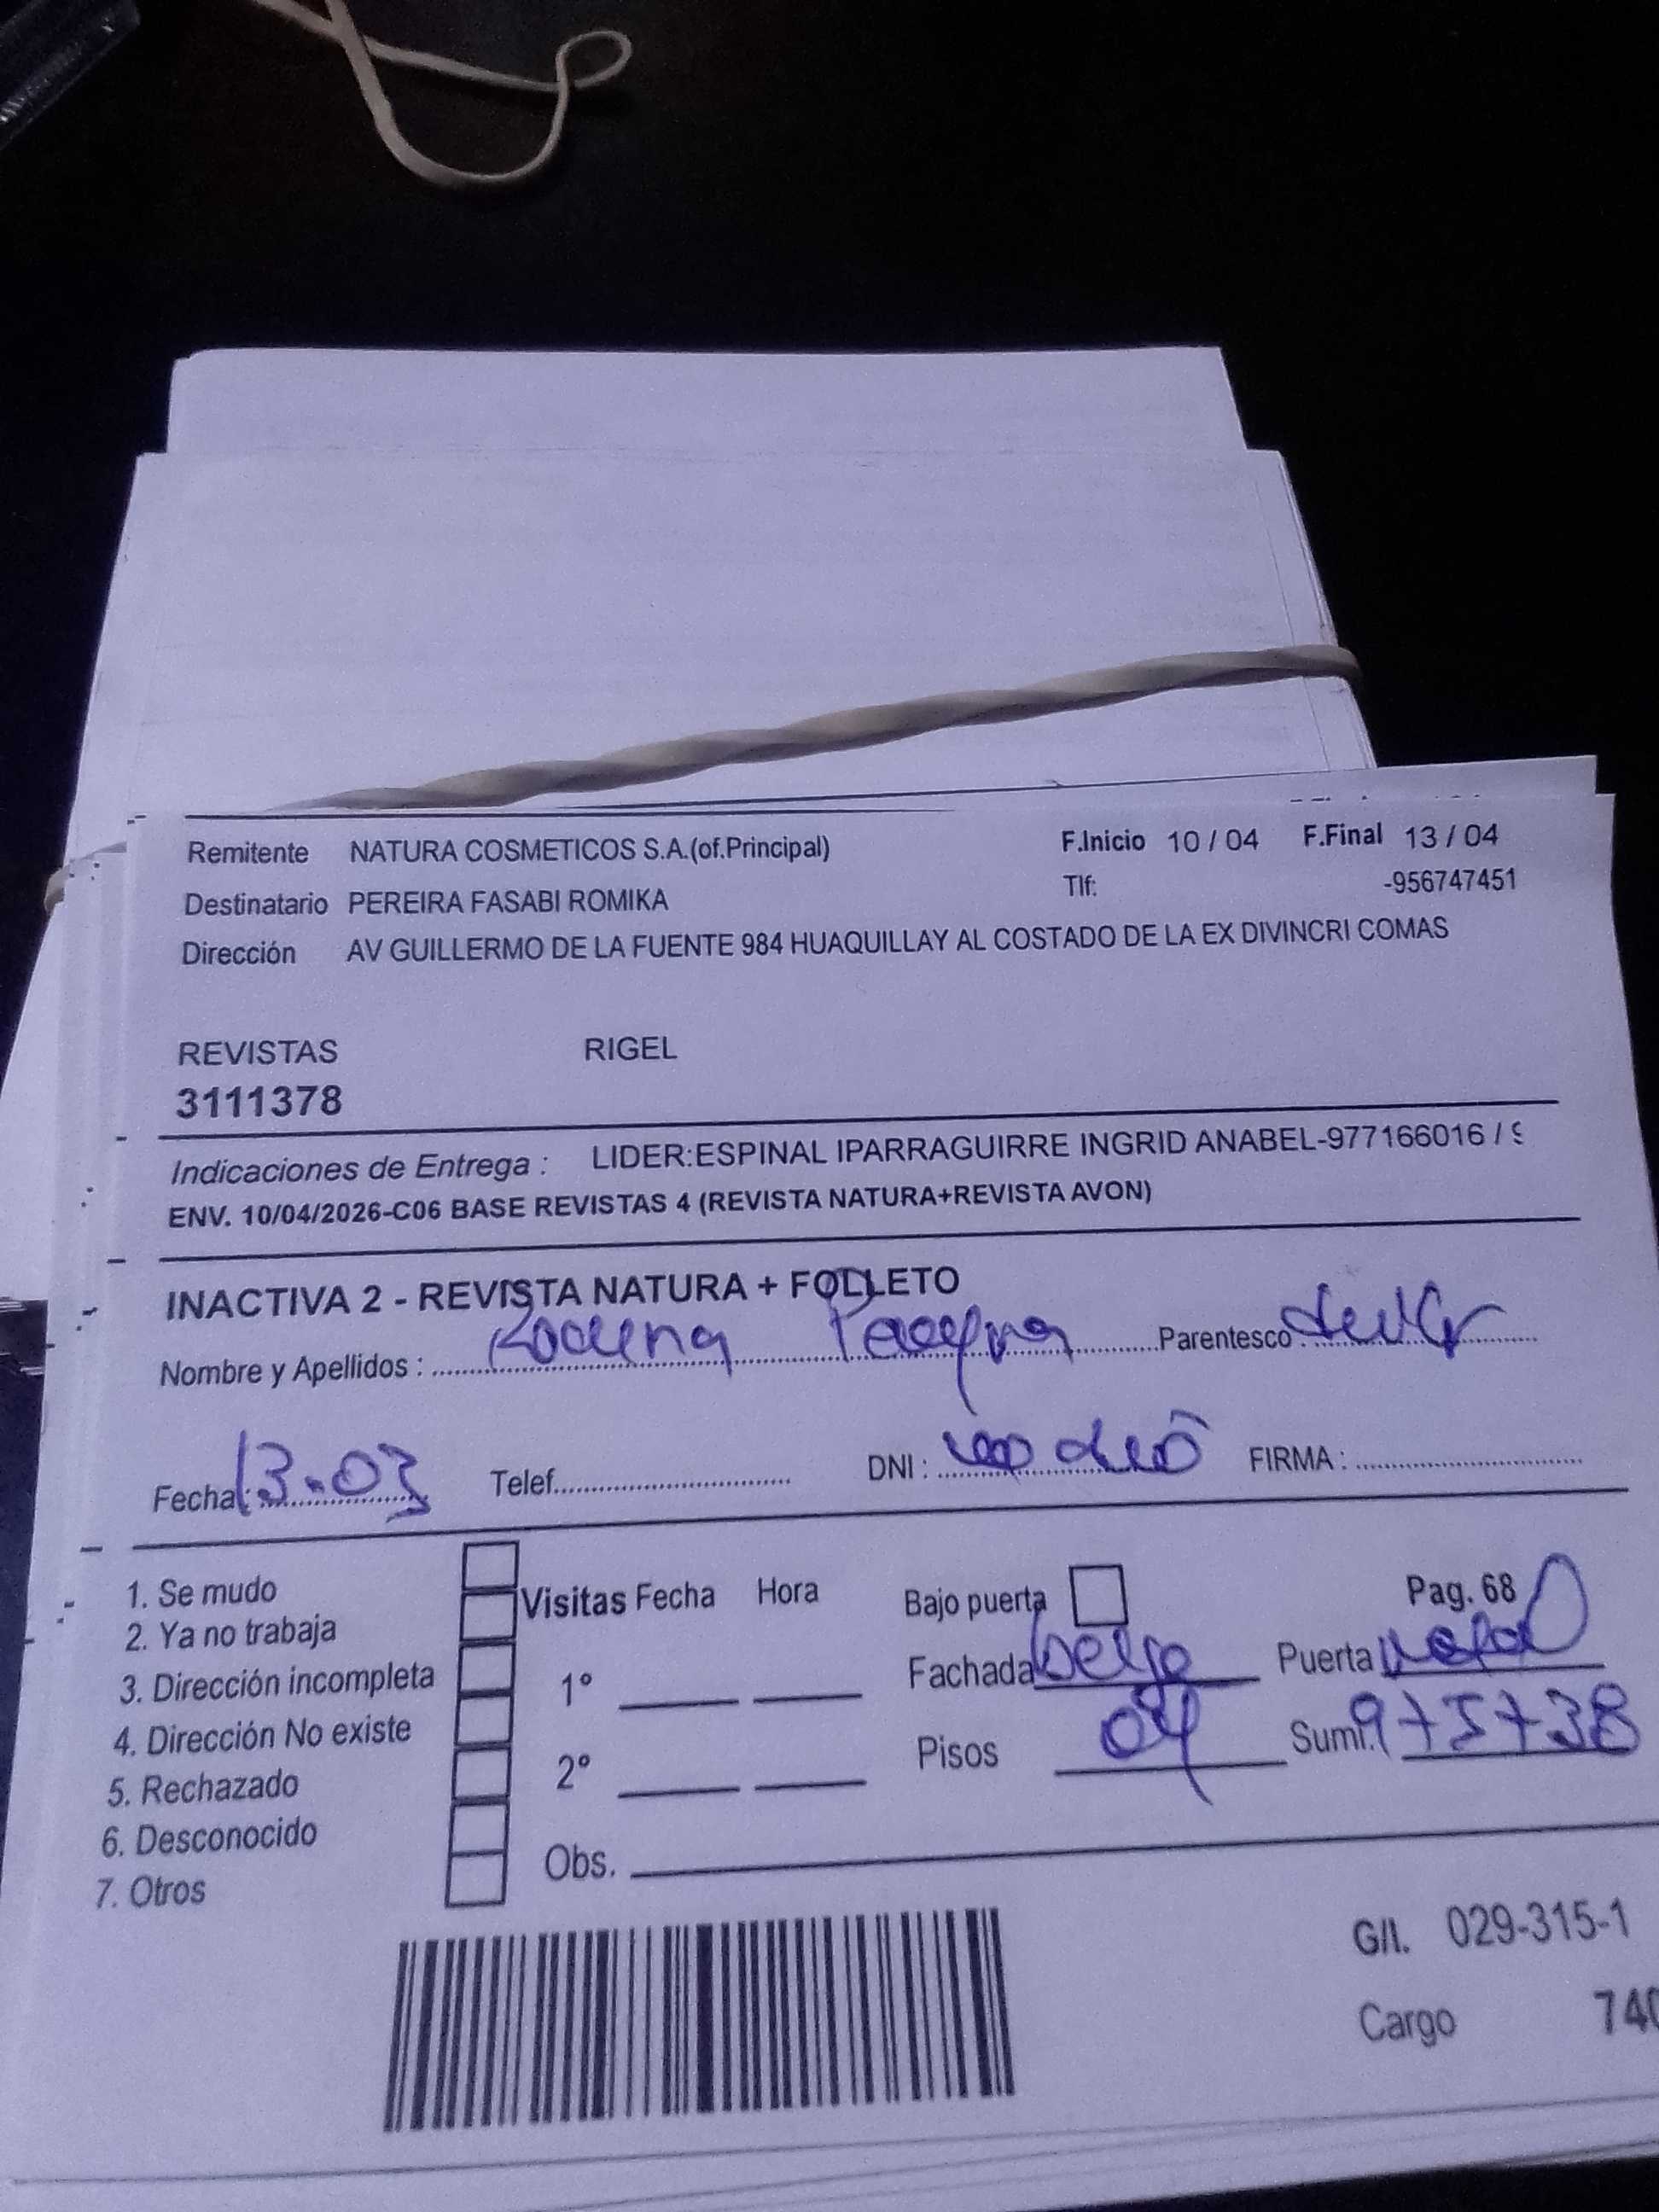 Remitente NATURA COSMETICOS S.A.(of.Principal) F.Inicio 10 / 04 F.Final 13 / 04
Destinatario PEREIRA FASABI ROMIKA Tlf: -956747451
Dirección AV GUILLERMO DE LA FUENTE 984 HUAQUILLAY AL COSTADO DE LA EX DIVINCRI COMAS
REVISTAS RIGEL
3111378
Indicaciones de Entrega : LIDER:ESPINAL IPARRAGUIRRE INGRID ANABEL-977166016 /
ENV. 10/04/2026-C06 BASE REVISTAS 4 (REVISTA NATURA+REVISTA AVON)
INACTIVA 2 - REVISTA NATURA + FOLLETO
Nombre y Apellidos : Parentesco :
Fecha : 13-03 Telef. DNI : FIRMA :
1. Se mudo
2. Ya no trabaja
3. Dirección incompleta
4. Dirección No existe
5. Rechazado
6. Desconocido
7. Otros
Visitas Fecha Hora
1°
2°
Obs.
Bajo puerta Pag. 68
Fachada Puerta
Pisos 04 Sumi.
G/I. 029-315-1
Cargo 740